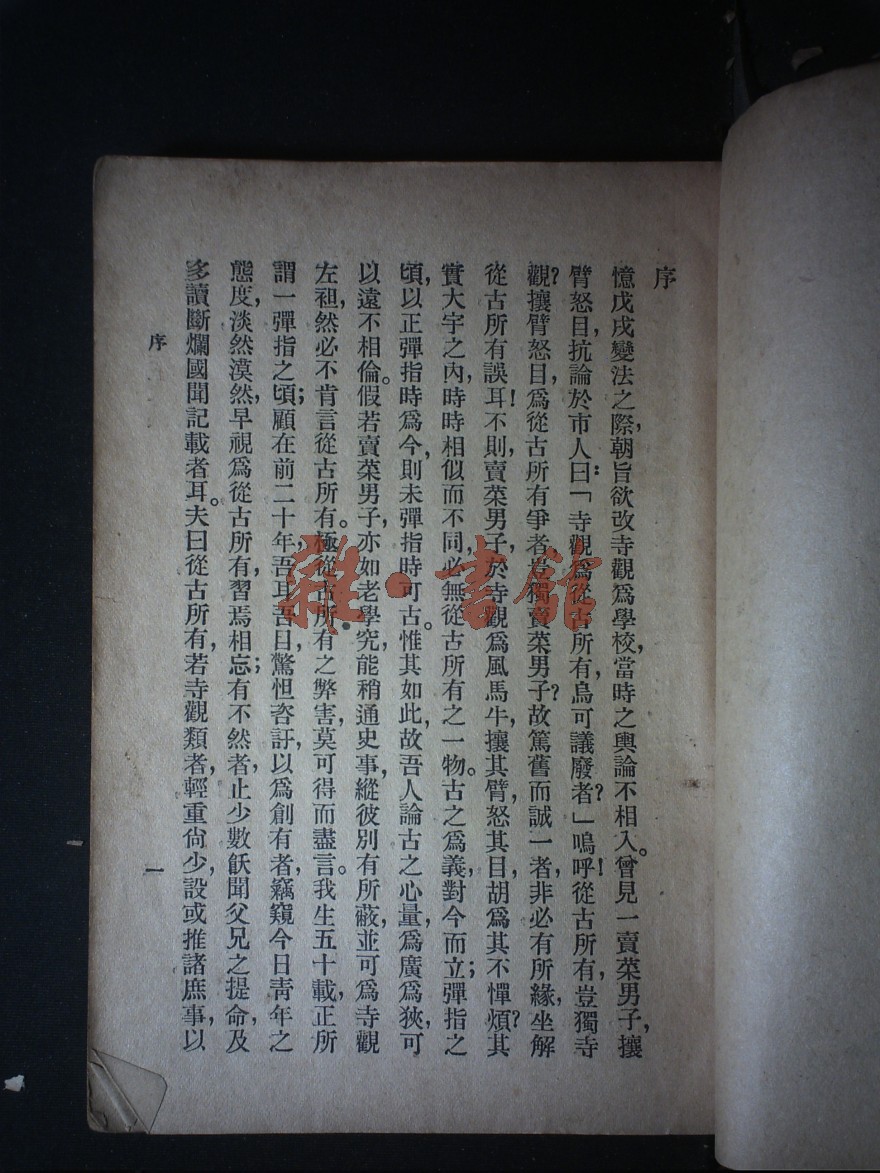 序
憶戊戌變法之際，朝旨欲改寺觀爲學校，當時之輿論不相入。曾見一賣菜男子，攘
臂怒目，抗論於市人曰：「寺觀爲從古所有，烏可議廢者？」嗚呼！從古所有，豈獨寺
觀？攘臂怒目，爲從古所有爭者，若獨賣菜男子？故篤舊而誠一者，非必有所緣，坐解
從古所有誤耳！不則，賣菜男子，於寺觀爲風馬牛，攘其臂，怒其目，胡爲其不憚煩？其
實大宇之內，時時相似而不同，必無從古所有之一物。古之爲義，對今而立；彈指之
頃，以正彈指時爲今，則未彈指時可古。惟其如此，故吾人論古之心量，爲廣爲狹，可
以遠不相倫。假若賣菜男子，亦如老學究能稍通史事，縱彼別有所蔽，並可爲寺觀
左袒，然必不肯言從古所有。極從古所有之弊害，莫可得而盡言。我生五十載，正所
謂一彈指之頃；顧在前二十年，吾耳吾目，驚怛咨訝，以爲創有者，竊窺今日靑年之
態度，淡然漠然，早視爲從古所有，習焉相忘；有不然者，止少數飫聞父兄之提命，及
多讀斷爛國聞記載者耳。夫曰從古所有，若寺觀類者，輕重尙少，設或推諸庶事，以
序
一
雜·書館